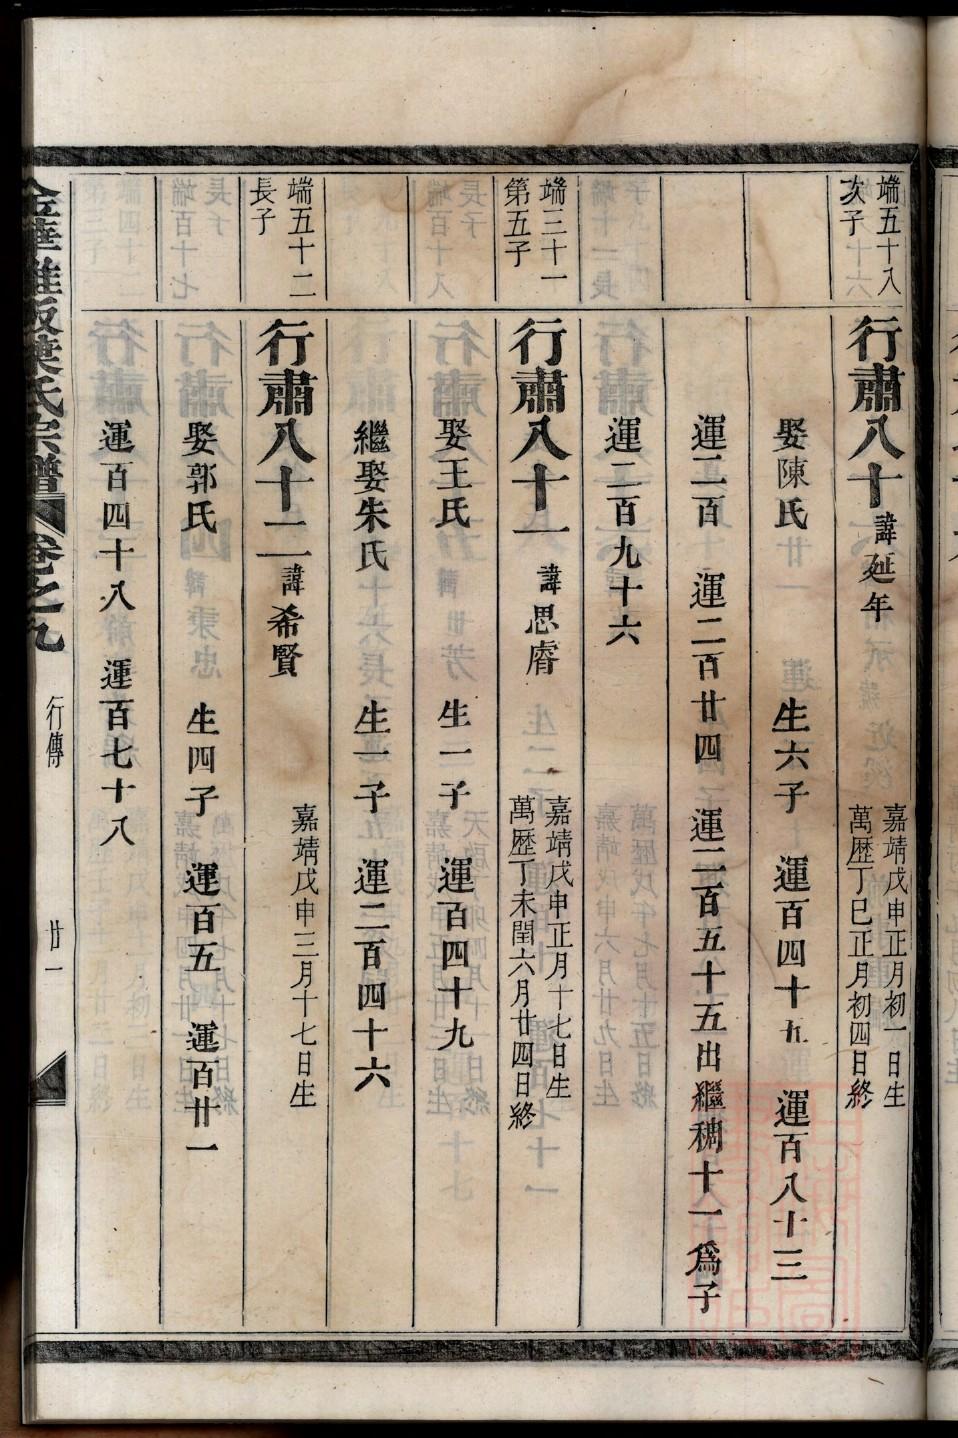 端五十八
次子
行肅八十
諱延年
嘉靖戊申正月初一日生
萬歷丁巳正月初四日終
娶陳氏 生六子 運百四十五 運百八十三
運二百 運二百廿四 運二百五十五出繼稠十一爲子
運二百九十六
端三十一
第五子
行肅八十一
諱思睿
嘉靖戊申正月十七日生
萬歷丁未閏六月廿四日終
娶王氏 生一子 運百四十九
繼娶朱氏 生一子 運二百四十六
端五十二
長子
行肅八十二
諱希賢
嘉靖戊申三月十七日生
娶郭氏 生四子 運百五 運百廿一
運百四十八 運百七十八
氏宗譜 卷之九 行傳 廿一